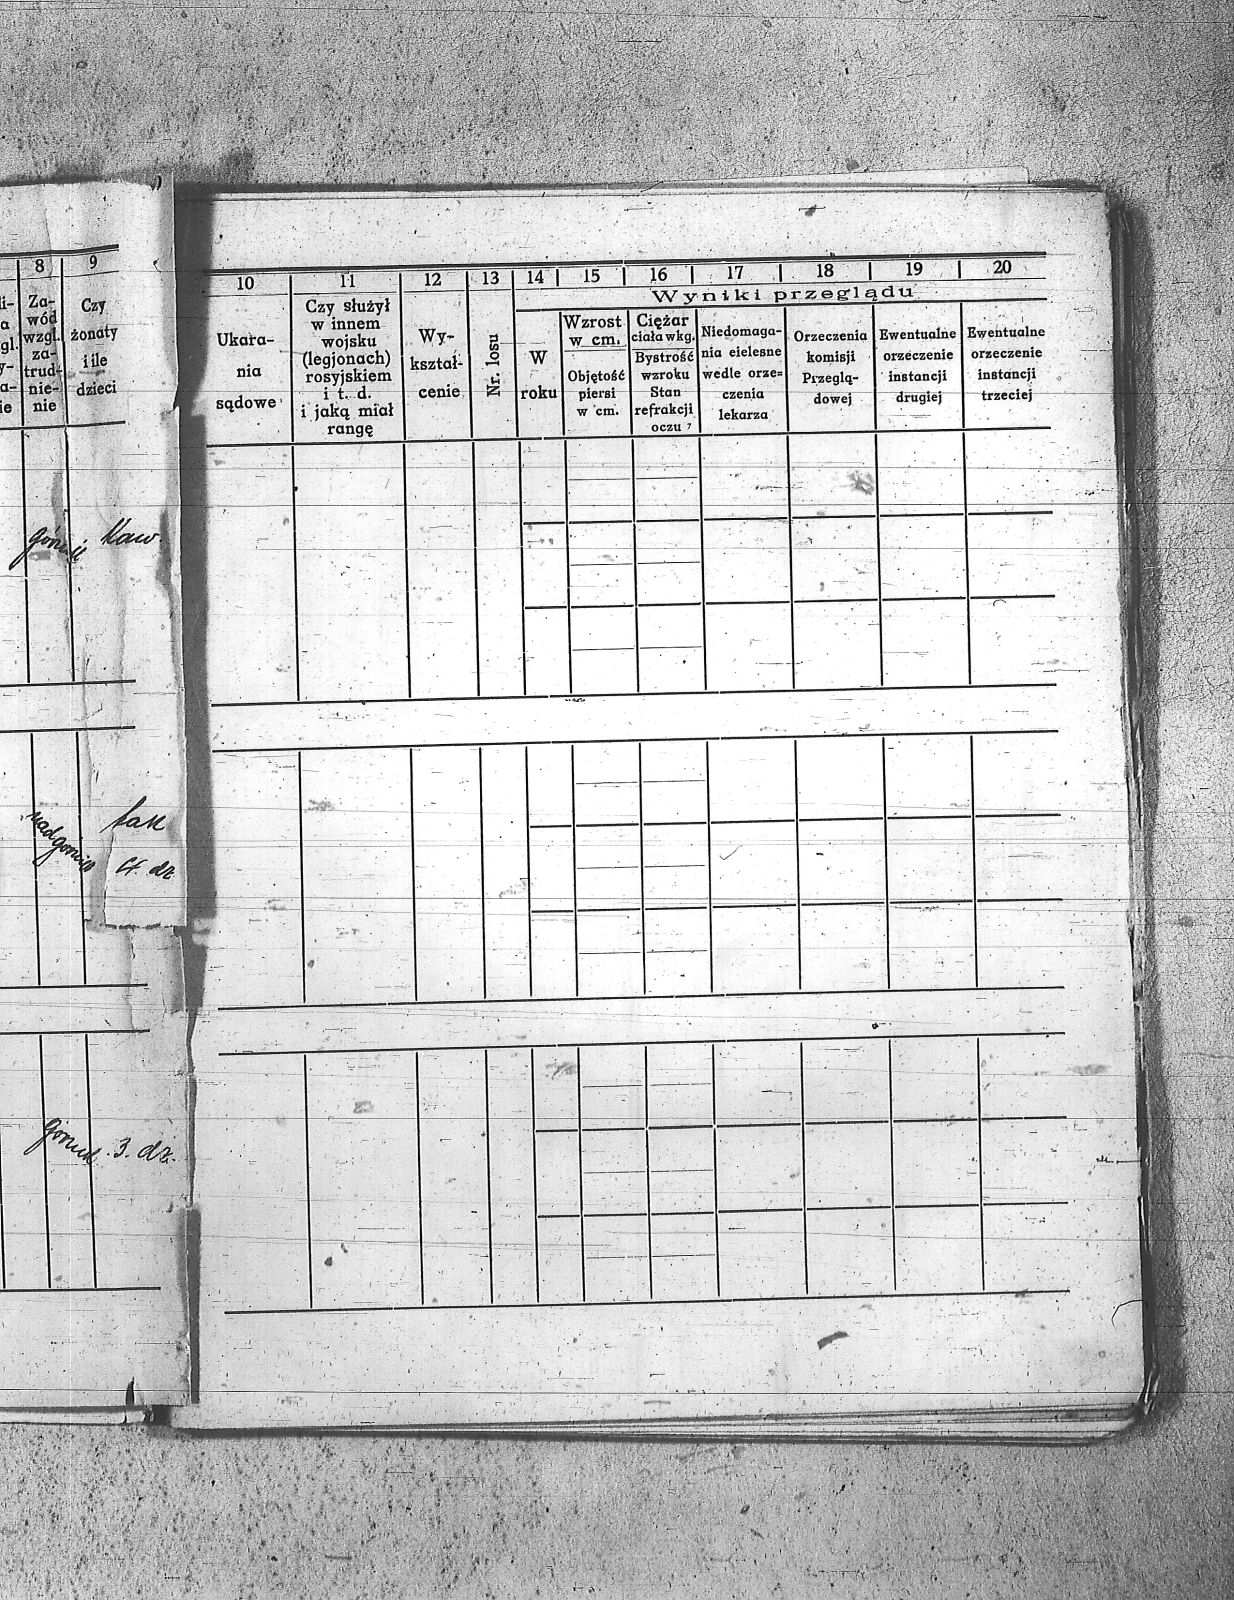 8 9
Za-
wód
wzgl.
za-
trud-
nie-
nie
Czy
żonaty
i ile
dzieci
Kaw.
tak
4. dz.
3. dz.
10 11 12 13 14 15 16 17 18 19 20
Wyniki przeglądu
Ukara-
nia
sądowe
Czy służył
w innem
wojsku
(legjonach)
rosyjskiem
i t. d.
i jaką miał
rangę
Wy-
kształ-
cenie
Nr. losu
W
roku
Wzrost
w cm.
Objętość
piersi
w cm.
Ciężar
ciała w kg.
Bystrość
wzroku
Stan
refrakcji
oczu
Niedomaga-
nia cielesne
wedle orze-
czenia
lekarza
Orzeczenia
komisji
Przeglą-
dowej
Ewentualne
orzeczenie
instancji
drugiej
Ewentualne
orzeczenie
instancji
trzeciej